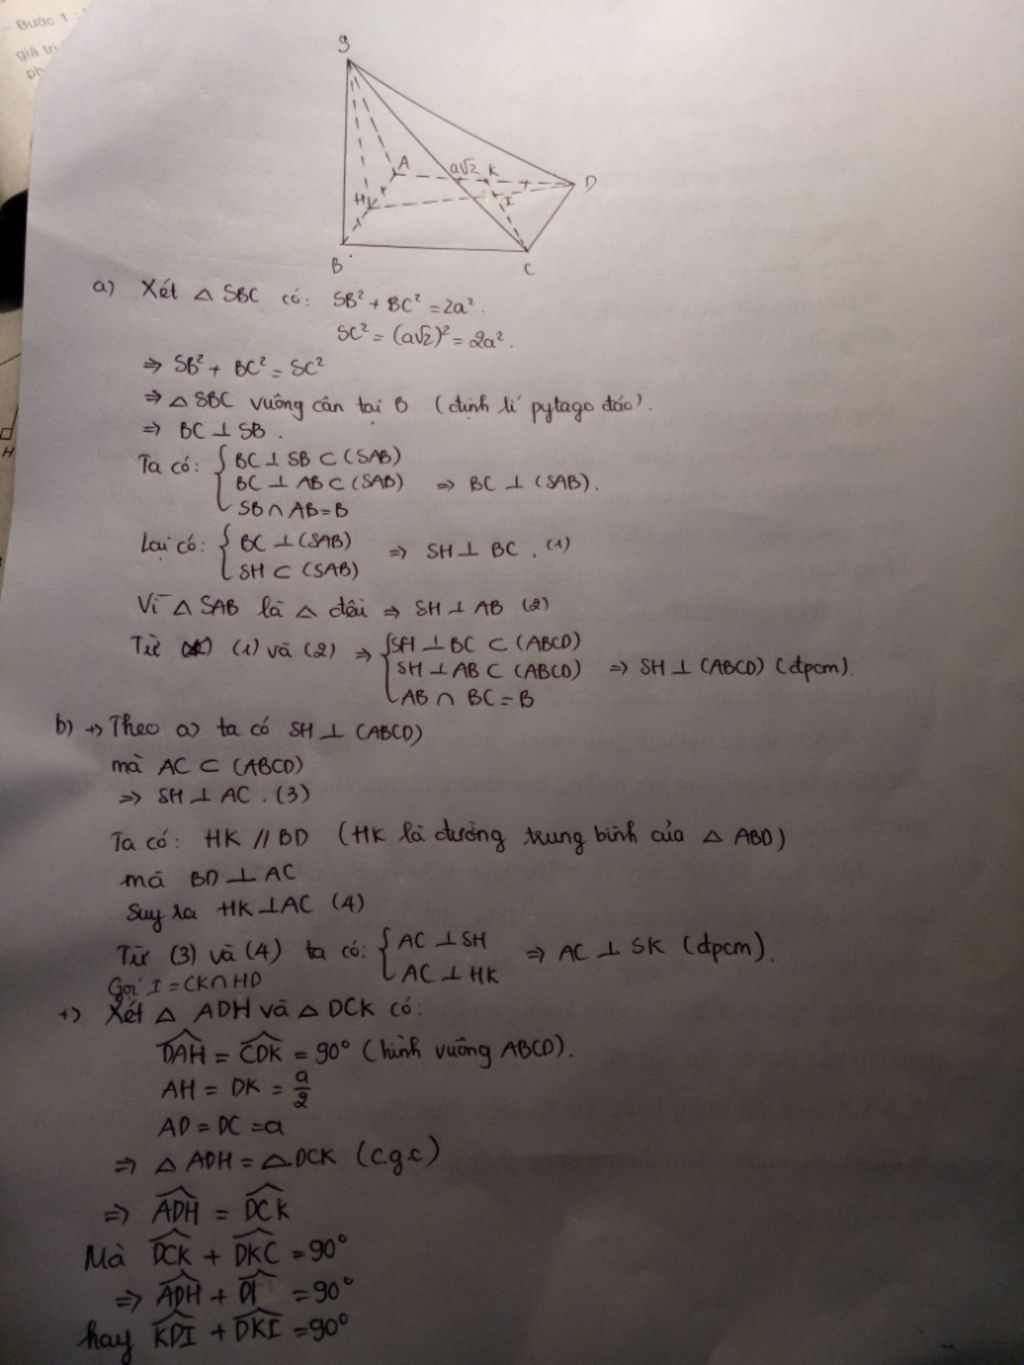 Bước 1
giá trị
ph
S
A
a√2 K
D
H
I
B
C
H
a) Xét △ SBC có: SB² + BC² = 2a².
SC² = (a√2)² = 2a².
⇒ SB² + BC² = SC²
⇒ △ SBC vuông cân tại B (định lí pytago đảo).
⇒ BC ⊥ SB.
Ta có: { BC ⊥ SB ⊂ (SAB)
BC ⊥ AB ⊂ (SAB) ⇒ BC ⊥ (SAB).
SB ∩ AB = B
Lại có: { BC ⊥ (SAB) ⇒ SH ⊥ BC. (1)
SH ⊂ (SAB)
Vì △ SAB là △ đều ⇒ SH ⊥ AB (2)
Từ (1) và (2) ⇒ { SH ⊥ BC ⊂ (ABCD)
SH ⊥ AB ⊂ (ABCD) ⇒ SH ⊥ (ABCD) (đpcm).
AB ∩ BC = B
b) +) Theo a) ta có SH ⊥ (ABCD)
mà AC ⊂ (ABCD)
⇒ SH ⊥ AC. (3)
Ta có: HK // BD (HK là đường trung bình của △ ABD)
mà BD ⊥ AC
Suy ra HK ⊥ AC (4)
Từ (3) và (4) ta có: { AC ⊥ SH ⇒ AC ⊥ SK (đpcm).
AC ⊥ HK
Gọi I = CK ∩ HD
+) Xét △ ADH và △ DCK có:
\widehat{DAH} = \widehat{CDK} = 90° (hình vuông ABCD).
AH = DK = a/2
AD = DC = a
⇒ △ ADH = △ DCK (c.g.c)
⇒ \widehat{ADH} = \widehat{DCK}
Mà \widehat{DCK} + \widehat{DKC} = 90°
⇒ \widehat{ADH} + = 90°
hay \widehat{KDI} + \widehat{DKI} = 90°